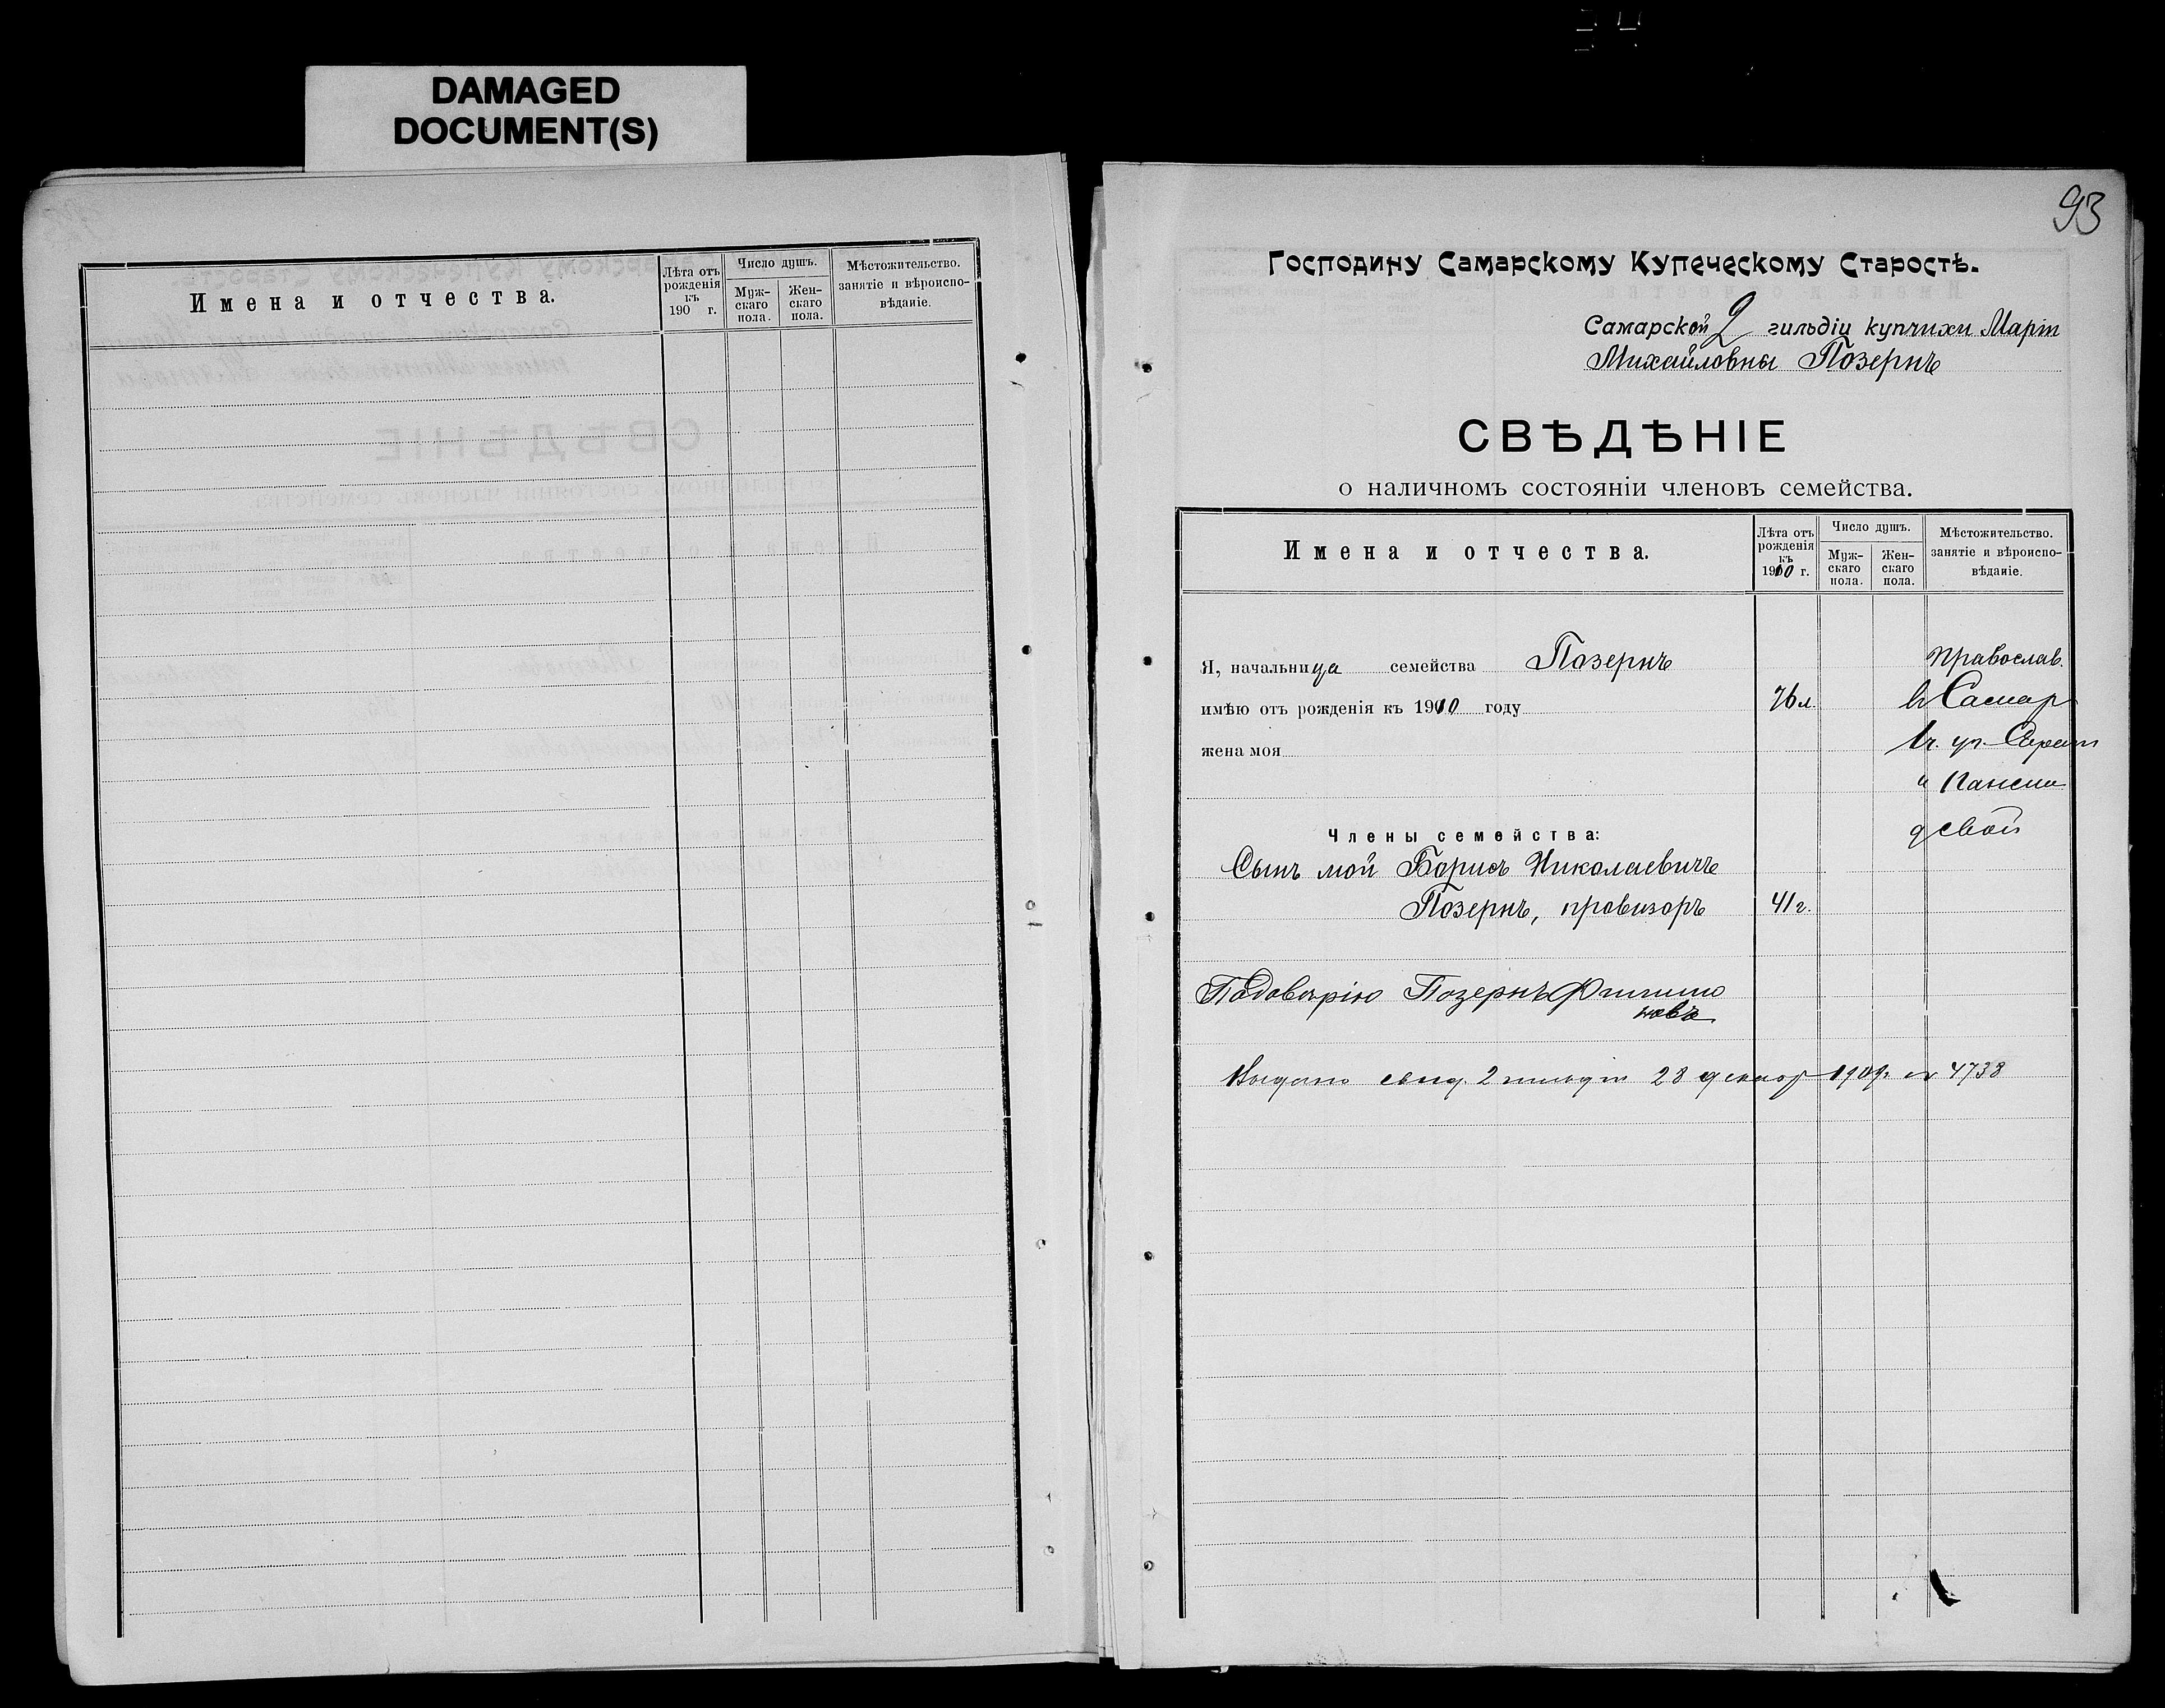 DAMAGED
DOCUMENT(S)
Имена и отчества.
Лѣта отъ
рожденія
къ
190 г.
Число душъ.
Муж-
скаго
пола.
Жен-
скаго
пола.
Мѣстожительство.
занятіе и вѣроиспо-
вѣданіе.
93
Господину Самарскому Купеческому Старостѣ.
Самарской 2 гильдіи купчихи Маріи
Михайловны Позернъ
СВѢДѢНІЕ
о наличномъ состояніи членовъ семейства.
Имена и отчества.
Лѣта отъ
рожденія
къ
1910 г.
Число душъ.
Муж-
скаго
пола.
Жен-
скаго
пола.
Мѣстожительство.
занятіе и вѣроиспо-
вѣданіе.
Я, начальница семейства Позернъ
православ.
имѣю отъ рожденія къ 1910 году 76 л.
в Самар
жена моя
1 ч. уг.
и Панска
Члены семейства:
Сынъ мой Борисъ Николаевичъ
Позернъ, провизоръ 41 г.
По довѣрію Позернъ Филипо
новъ
Выдано свид. 2 гильдіи 28 декабр 1909 г. № 4738